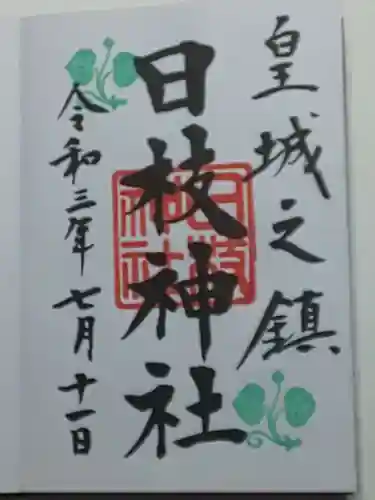 皇城之鎮
日枝神社
令和三年七月十一日
日枝神社